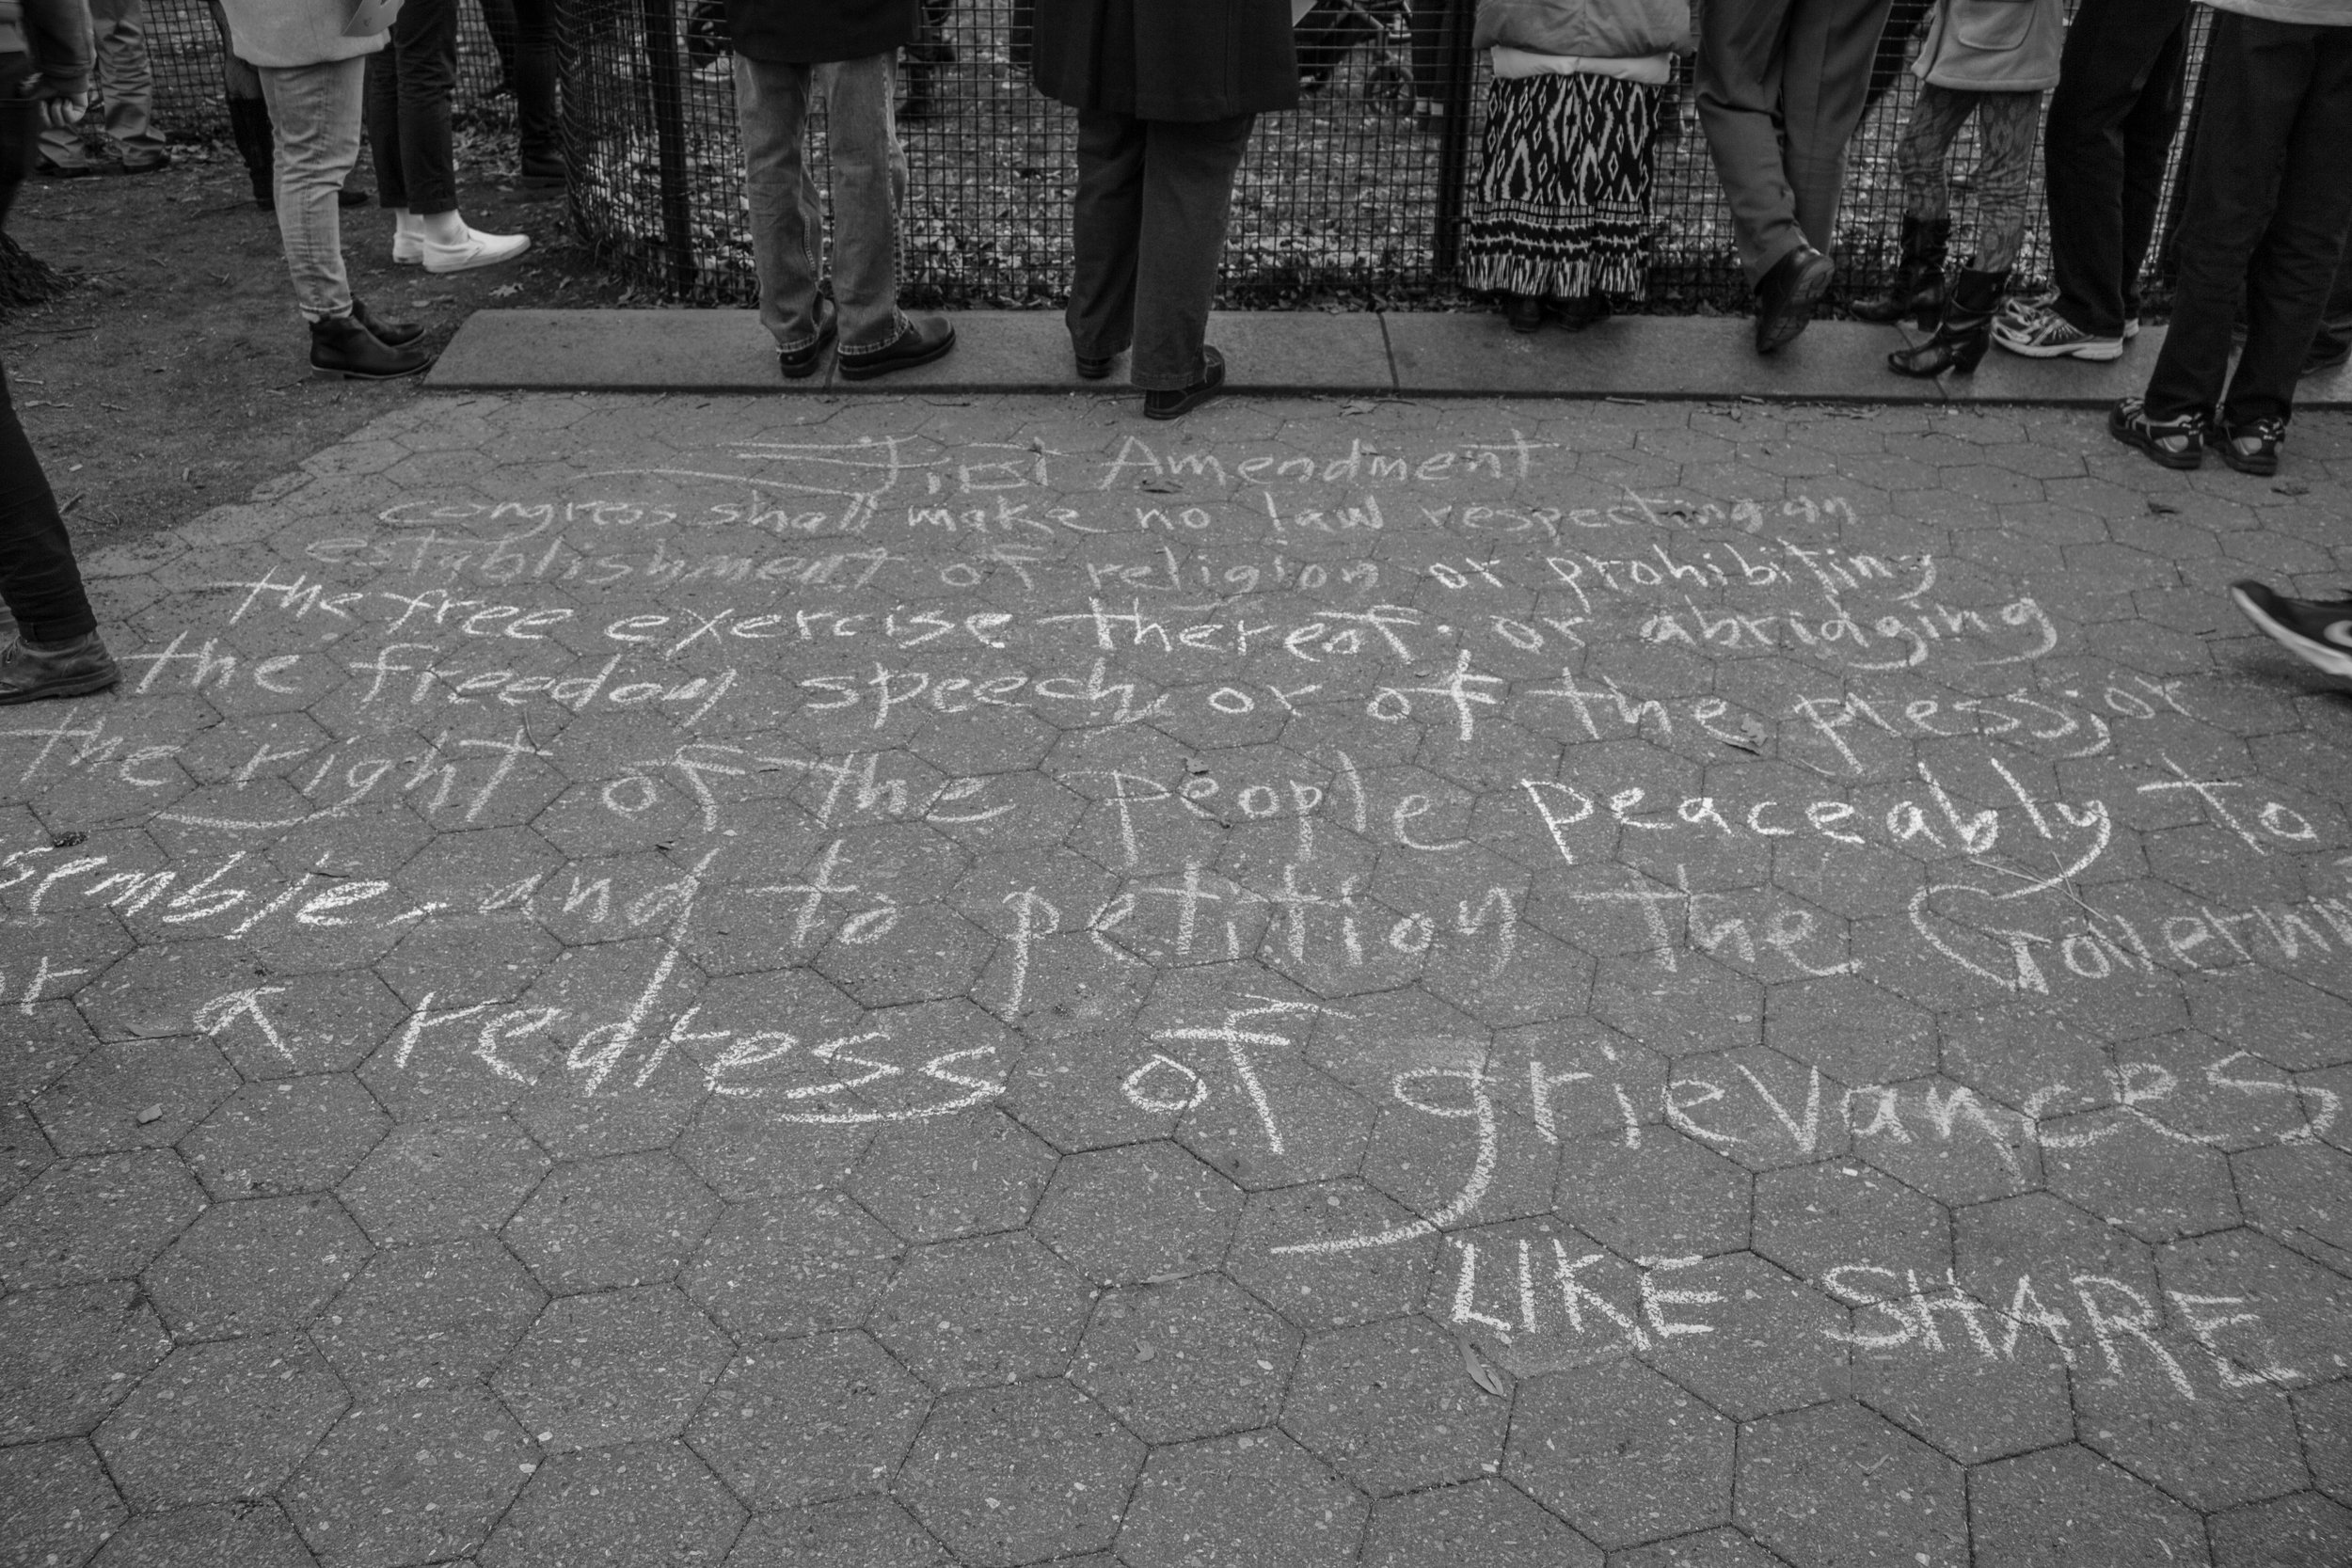 First Amendment
Congress shall make no law respecting an
establishment of religion or prohibiting
the free exercise thereof. or abridging
the freedom speech or of the press; or
the right of the people peaceably to
semble, and to petition the Governm
r a redress of grievances
LIKE SHARE